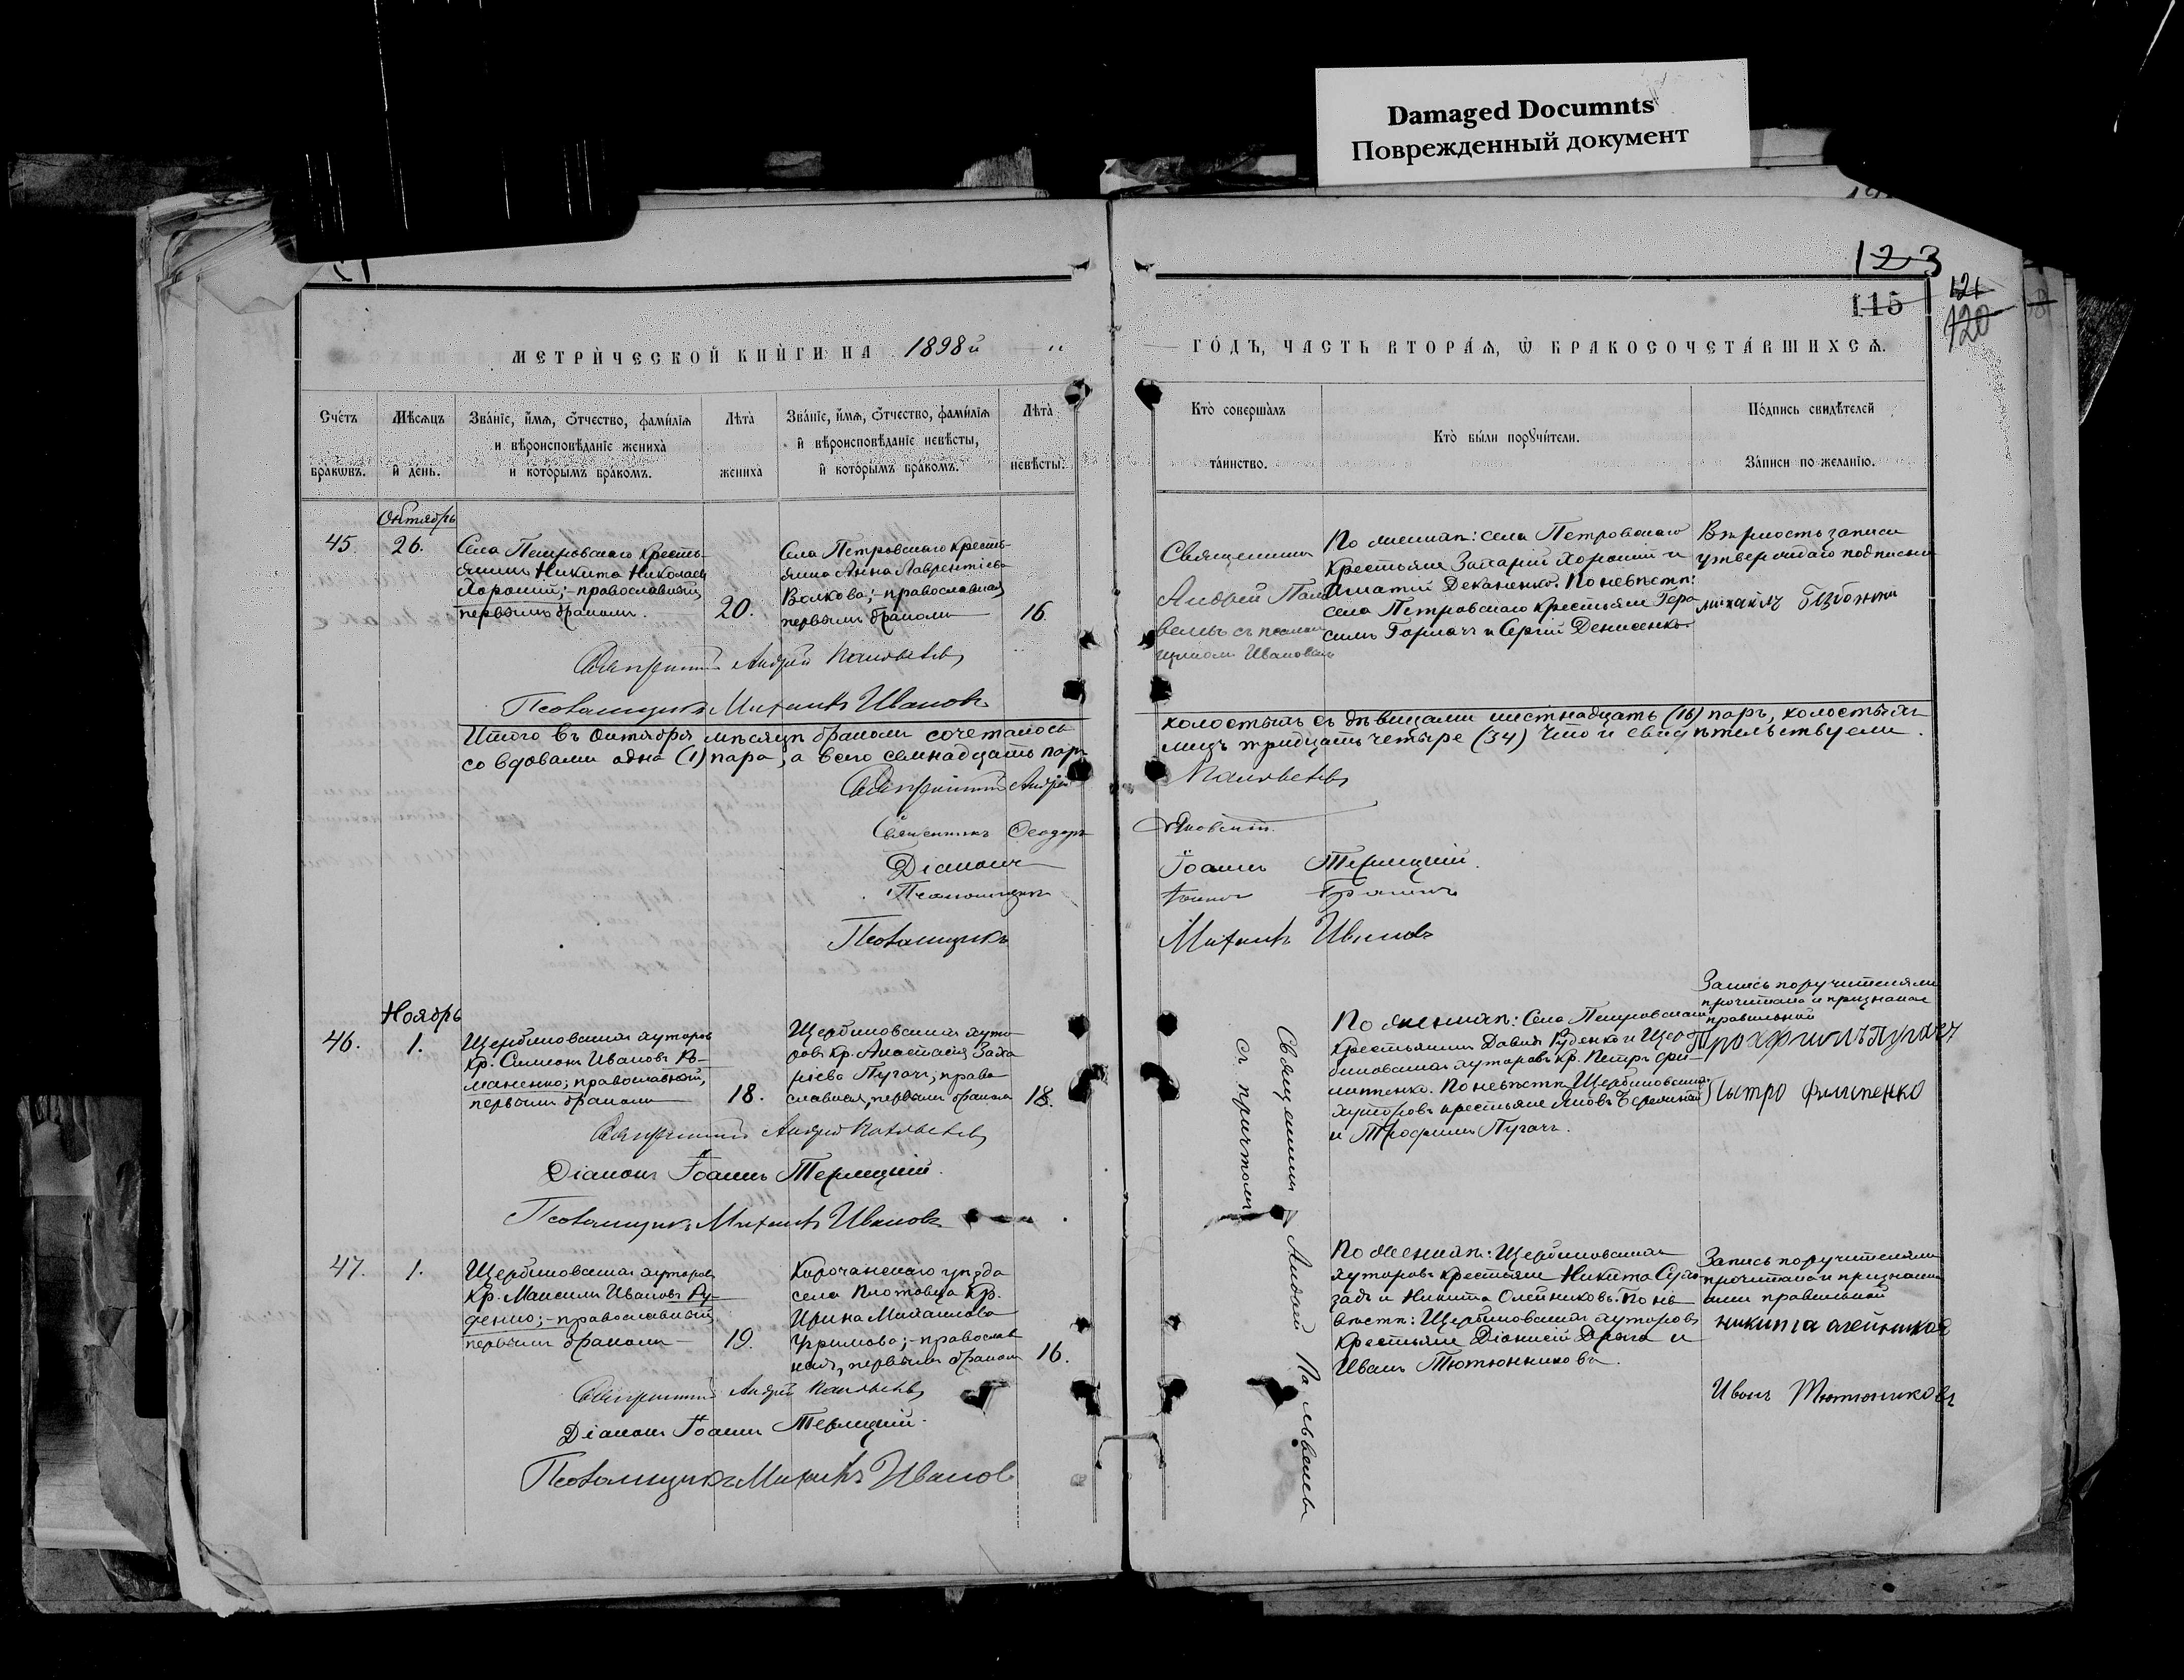 Damaged Documnts
Поврежденный документ
123
115
121
120
МЕТРИЧЕСКОЙ КНИГИ НА 1898й
ГОДЪ, ЧАСТЬ ВТОРАЯ, Ѡ БРАКОСОЧЕТАВШИХСЯ.
Счетъ браковъ.
Мѣсяцъ и день.
Званіе, имя, отчество, фамилія и вѣроисповѣданіе жениха и которымъ бракомъ.
Лѣта жениха
Званіе, имя, отчество, фамилія и вѣроисповѣданіе невѣсты, и которымъ бракомъ.
Лѣта невѣсты.
Кто совершалъ таинство.
Кто были поручители.
Подпись свидѣтелей записи по желанію.
Октябрь
45. 26.
Села Петровскаго кресть-
янинъ Никита Николаевъ
Хорошій; - православный,
первымъ бракомъ.
20.
Села Петровскаго кресть-
янка Анна Лаврентіева
Волкова; - православная,
первымъ бракомъ
16.
Священникъ
Андрей
съ псалом-
щикомъ Ивановымъ
По женихѣ: села Петровскаго
крестьяне Захарій Хорошій и
Игнатій Деканенко. По невѣстѣ:
села Петровскаго крестьяне Гера-
симъ Гормачъ и Сергій Денисенко.
Вѣрность записи
утверждаю подписью
Михаилъ
Андрей
Псаломщикъ Михаилъ Ивановъ
Итого въ Октябрѣ мѣсяцѣ бракомъ сочеталось
холостыхъ съ дѣвицами шестнадцать (16) паръ, холостыхъ
со вдовами одна (1) пара, а всего семнадцать паръ
лицъ тридцать четыре (34) Что и свидѣтельствуемъ.
Андрей
Священникъ Ѳеодоръ Яновскій.
Діаконъ Іоаннъ Терлецкій.
Псаломщикъ
Псаломщикъ Михаилъ Ивановъ
Ноябрь
46. 1.
Щербиновскихъ хуторовъ
кр. Симеонъ Ивановъ Ро-
маненко; православный,
первымъ бракомъ
18.
Щербиновскихъ хуто-
ровъ кр. Анастасія Заха-
ріева Пугачъ; право-
славная, первымъ бракомъ
18.
По женихѣ: Села Петровскаго
крестьянинъ Давидъ Руденко и Щер-
биновскихъ хуторовъ кр. Петръ Фи-
липенко. По невѣстѣ Щербиновскихъ
хуторовъ крестьяне Яковъ
и Трофимъ Пугачъ.
Запись поручителями
прочитана и признана
правильной
Трохфимъ Пугачъ
Пытро Филипенко
Андрей
Діаконъ Іоаннъ Терлецкій.
Псаломщикъ Михаилъ Ивановъ
Священникъ Андрей
съ причтомъ
47. 1.
Щербиновскихъ хуторовъ
кр. Максимъ Ивановъ Ру-
денко; - православный
первымъ бракомъ
19.
Корочанскаго уѣзда
села Плотовца кр.
Ирина Михайлова
Угримова; - православ-
ная, первымъ бракомъ
16.
По женихѣ: Щербиновскихъ
хуторовъ крестьяне Никита
и Никита Олейниковъ. По не-
вѣстѣ: Щербиновскихъ хуторовъ
крестьяне Діонисій Дрыга и
Иванъ Тютюнниковъ.
Запись поручителями
прочитана и признана
ими правильной
никита алейников
Иванъ Тютюниковъ
Андрей
Діаконъ Іоаннъ Терлецкій.
Псаломщикъ Михаилъ Иванов